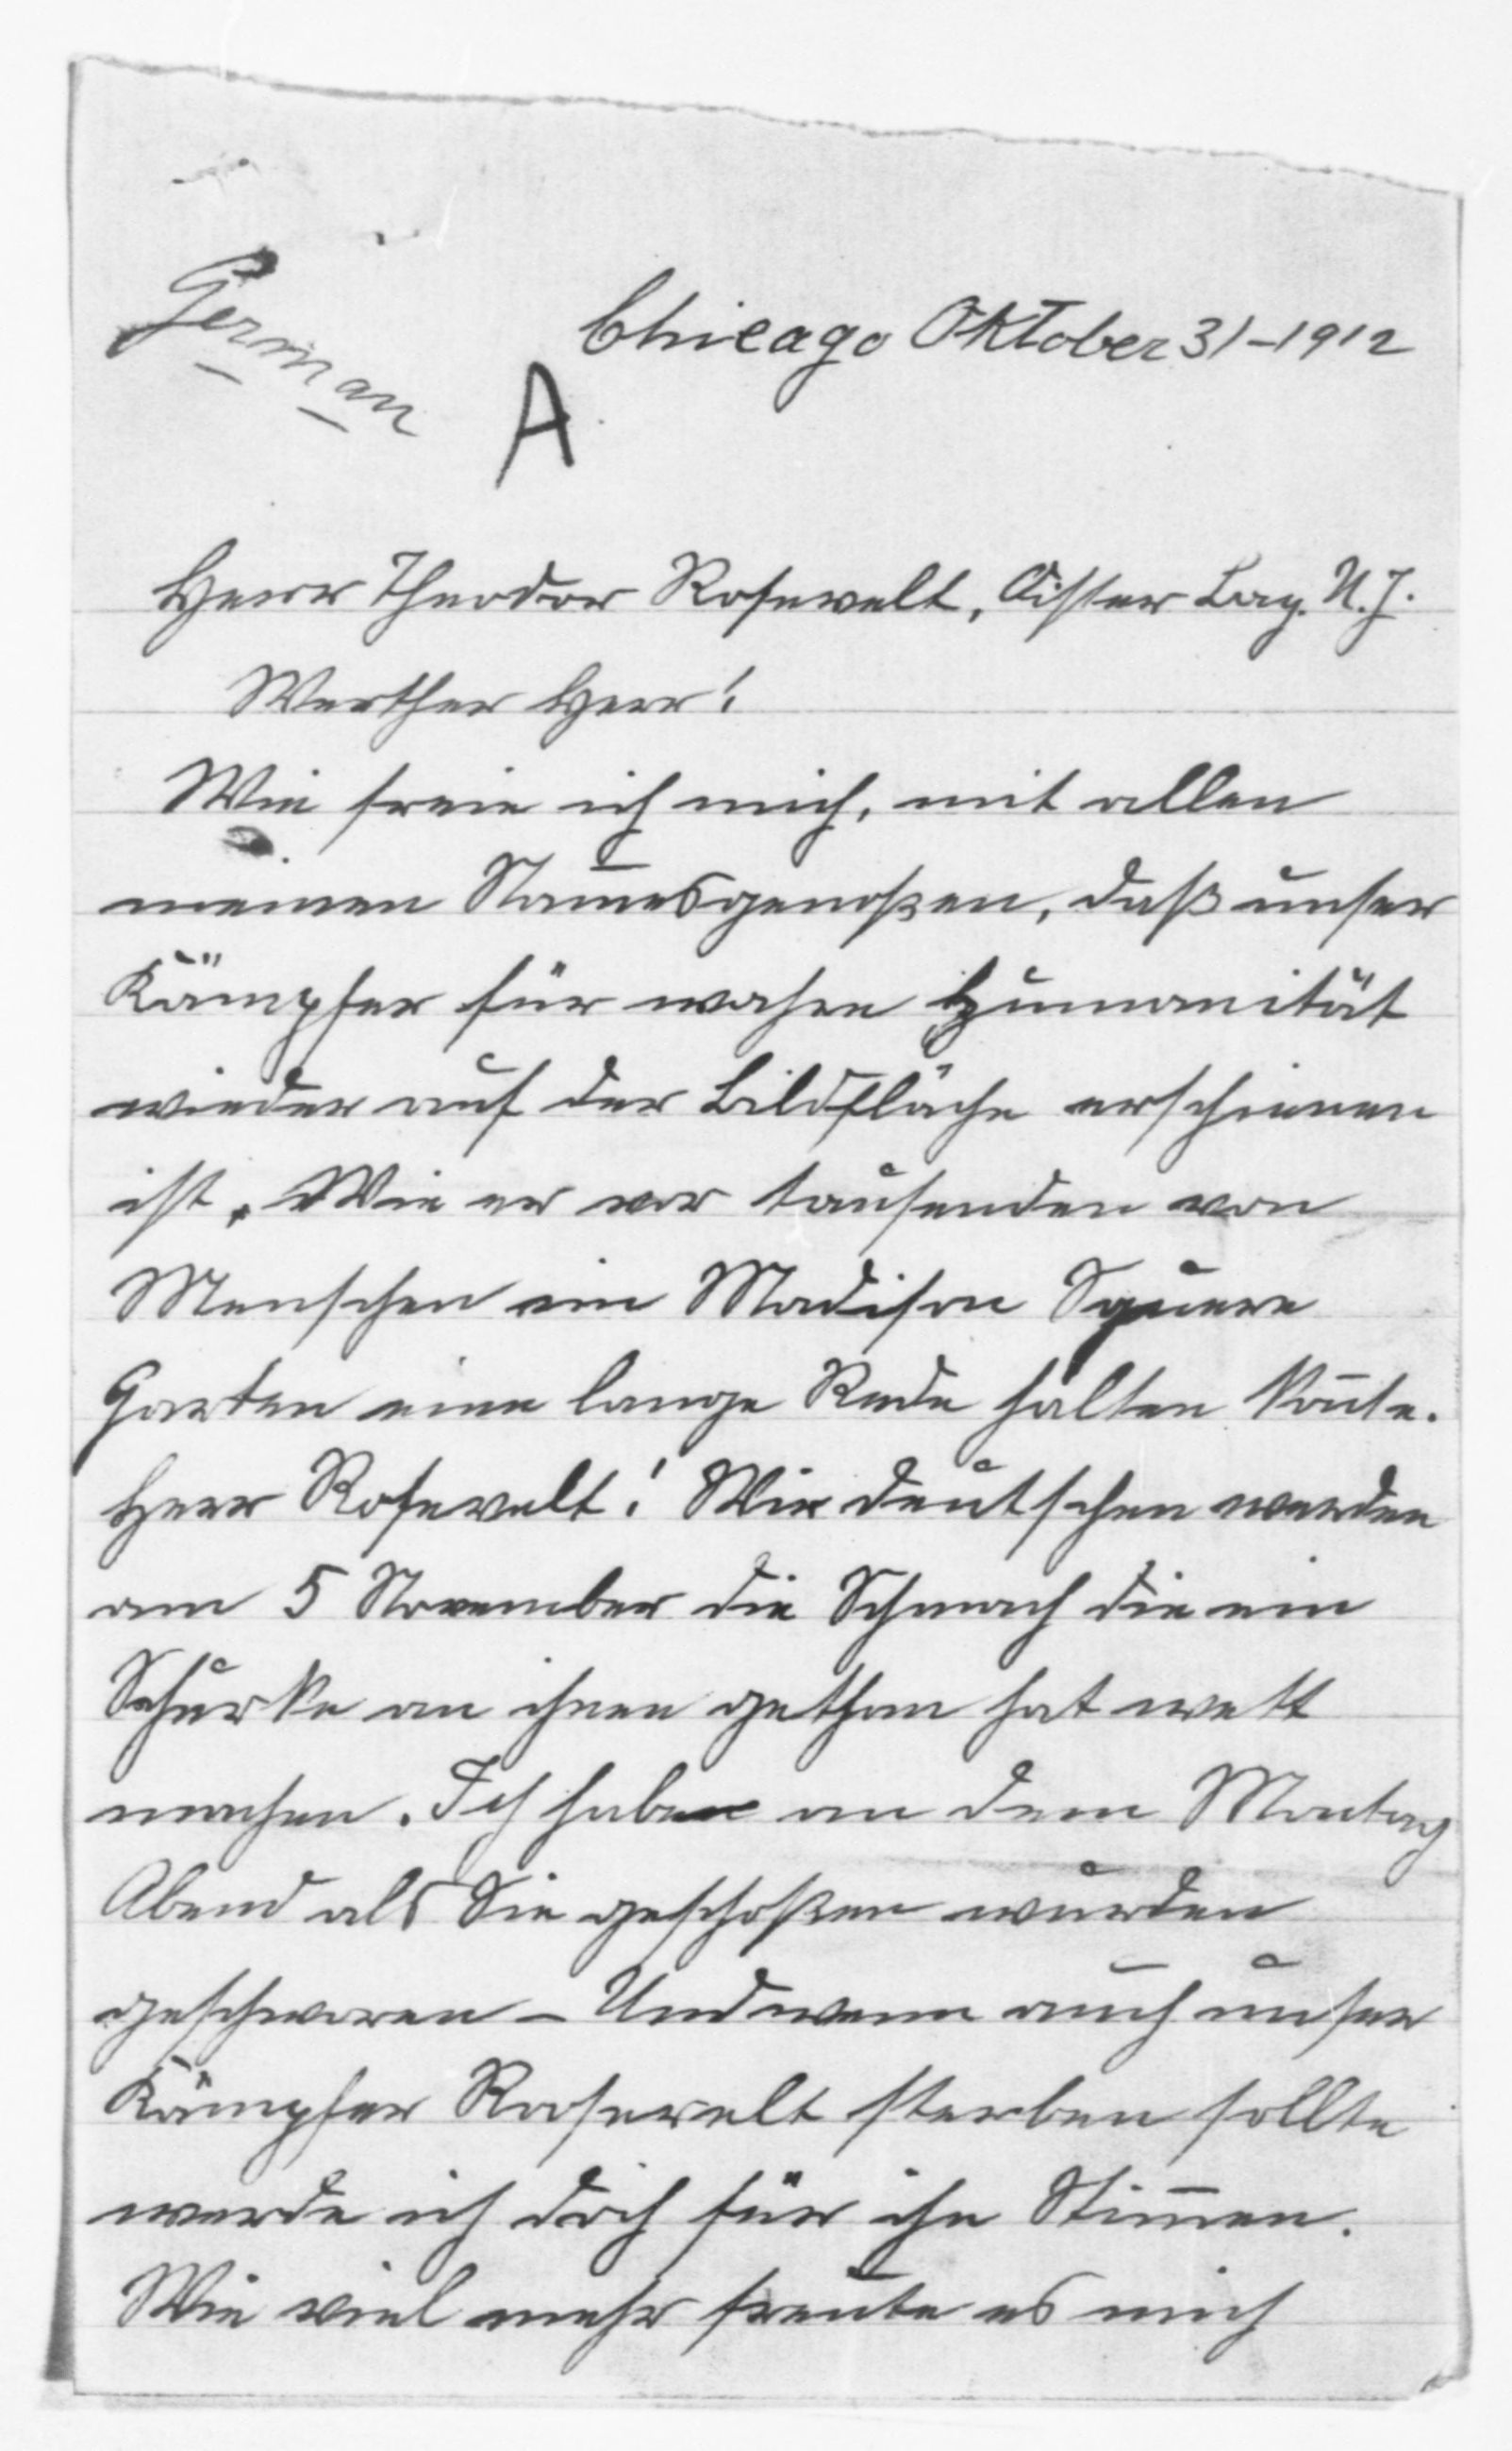 German
Chicago Oktober 31-1912
A
Herr Theodor Rosewelt, Oister Bay. N.J.
Werther Herr!
Wie freie ich mich, mit allen
meinen Stam̅esgenoßen, daß unser
Kämpfer für wahre Humanität
wieder auf der Bildfläche erschienen
ist. Wie er vor tausenden von
Menschen im Madison Squere
Garten eine lange Rede halten kon̅te.
Herr Rosewelt! Wir deutschen werden
am 5 November die Schmach die ein
Schurke an ihnen gethan hat wett
machen. Ich habe an dem Montag
Abend als Sie geschoßen wurden
geschworen – Und wenn auch unser
Kämpfer Rosewelt sterben sollte
werde ich doch für ihn Stim̅en.
Wie viel mehr freute es mich